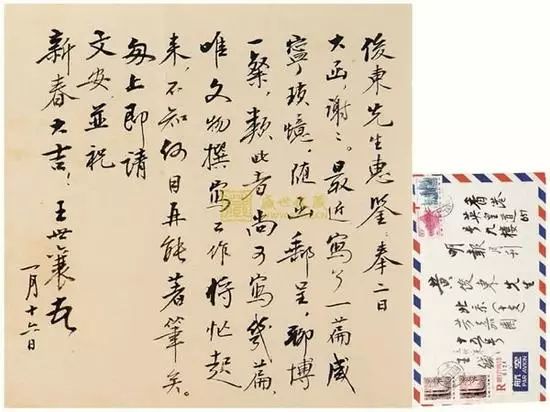 俊東先生惠鑒：奉二日
大函，謝〻。最近寫了一篇咸
寧瑣憶，隨函郵呈，聊博
一粲，類此者尚可寫幾篇，
唯文物撰寫工作將忙起
來，不知何日再能著筆矣。
匆上即請
文安並祝
新春大吉！王世襄
一月十六日
香港
英皇道
号九樓
明報月刊
黃俊東先生
北京
芳嘉園
十五号
航空
PAR AVION
R